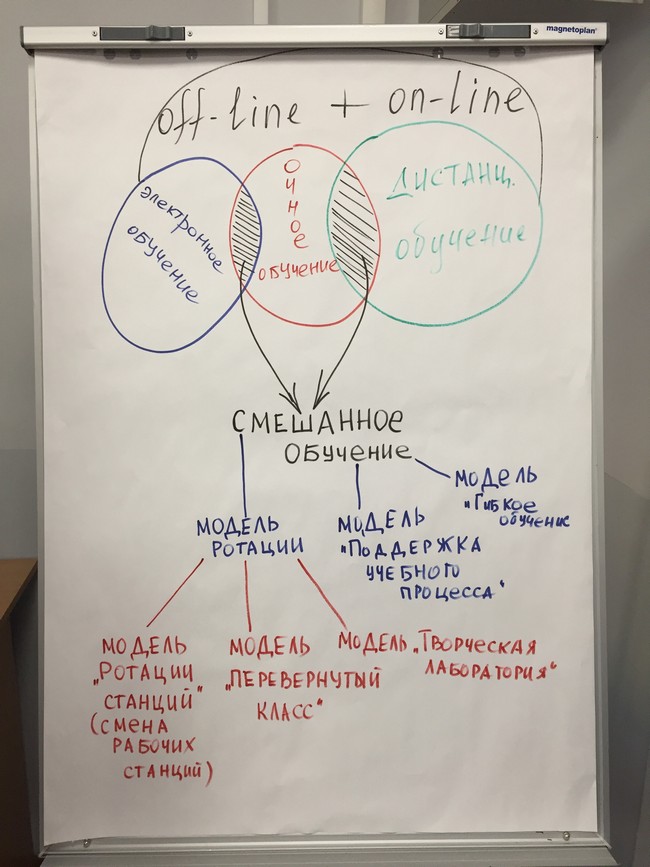 magnetoplan
off-line + on-line
электронное
обучение
Очное
обучение
Дистанц.
обучение
Смешанное
обучение
модель
"Гибкое
обучение
модель
ротации
модель
"Поддержка
учебного
процесса"
модель
„Ротации
станций"
(смена
рабочих
станций)
модель
„перевернутый
класс"
модель „Творческая
лаборатория"